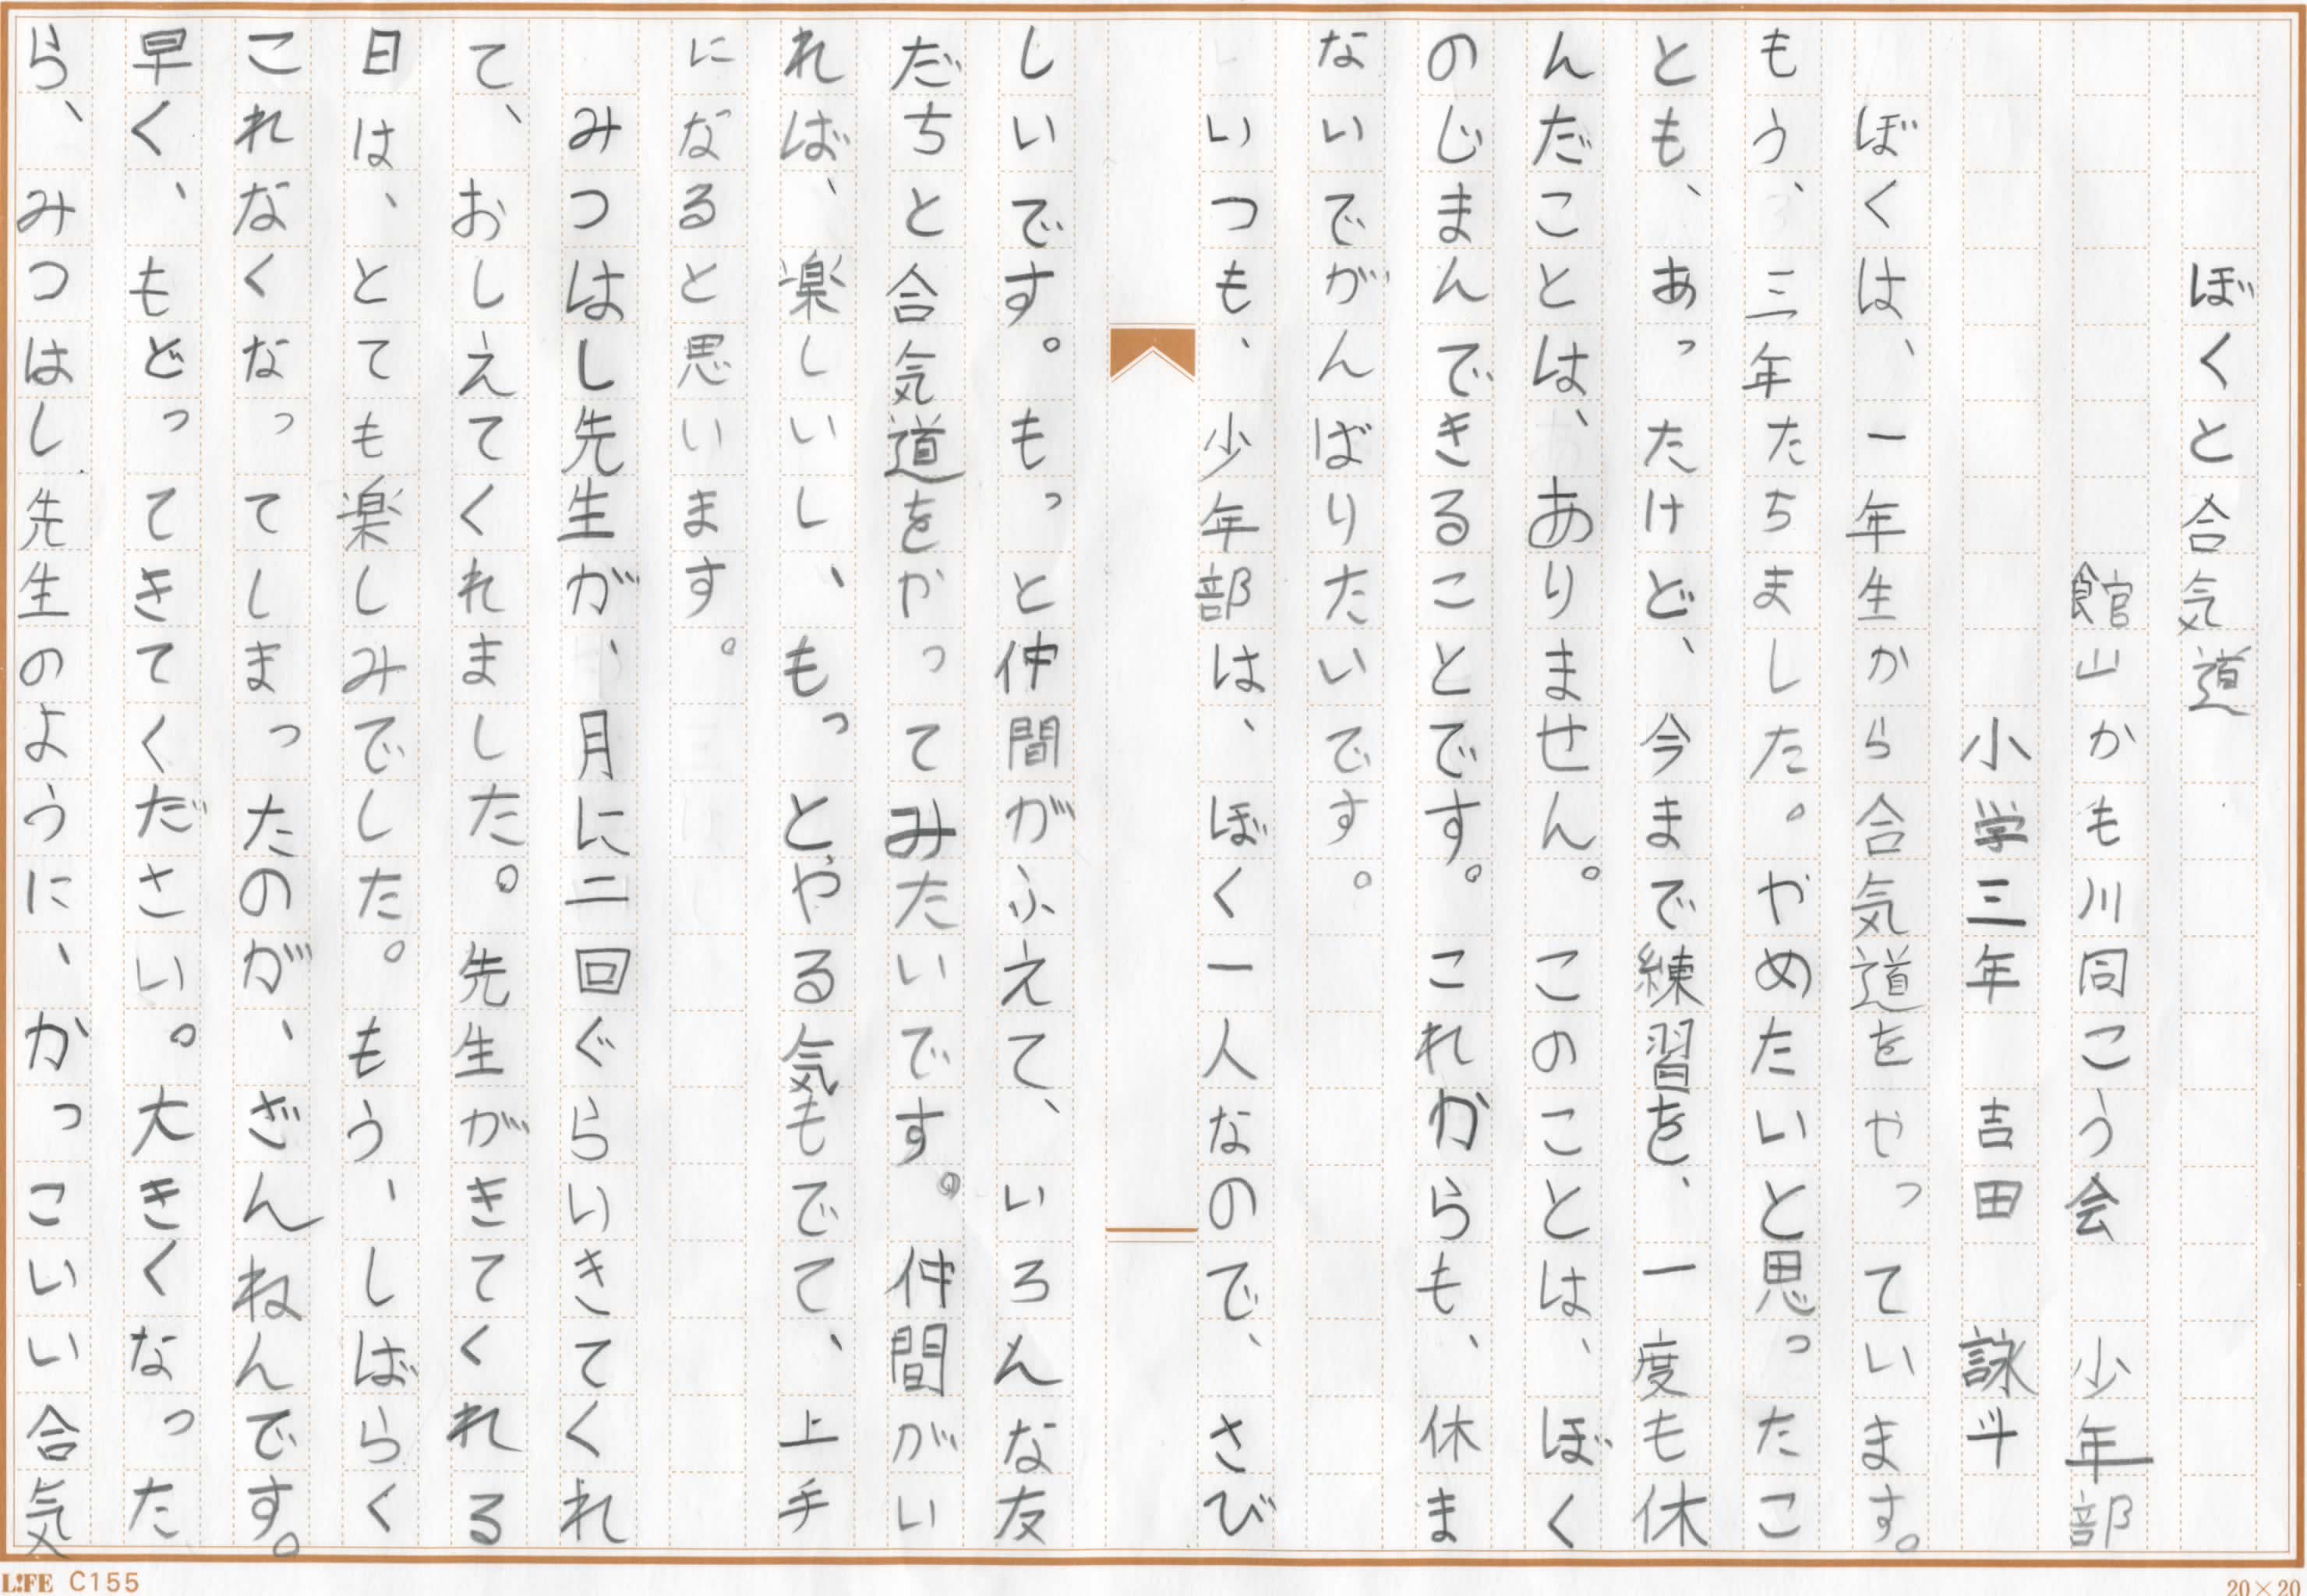 ぼくと合気道
館山かも川同こう会 少年部
小学三年 吉田 詠斗
ぼくは、一年生から合気道をやっています。
もう、三年たちました。やめたいと思ったこ
とも、あったけど、今まで練習を、一度も休
んだことは、ありません。このことは、ぼく
のじまんできることです。これからも、休ま
ないでがんばりたいです。
いつも、少年部は、ぼく一人なので、さび
しいです。もっと仲間がふえて、いろんな友
だちと合気道をやってみたいです。仲間がい
れば、楽しいし、もっとやる気もでて、上手
になると思います。
みつはし先生が、月に二回ぐらいきてくれ
て、おしえてくれました。先生がきてくれる
日は、とても楽しみでした。もう、しばらく
これなくなってしまったのが、ざんねんです。
早く、もどってきてください。大きくなった
ら、みつはし先生のように、かっこいい合気
L!FE C155
20×20